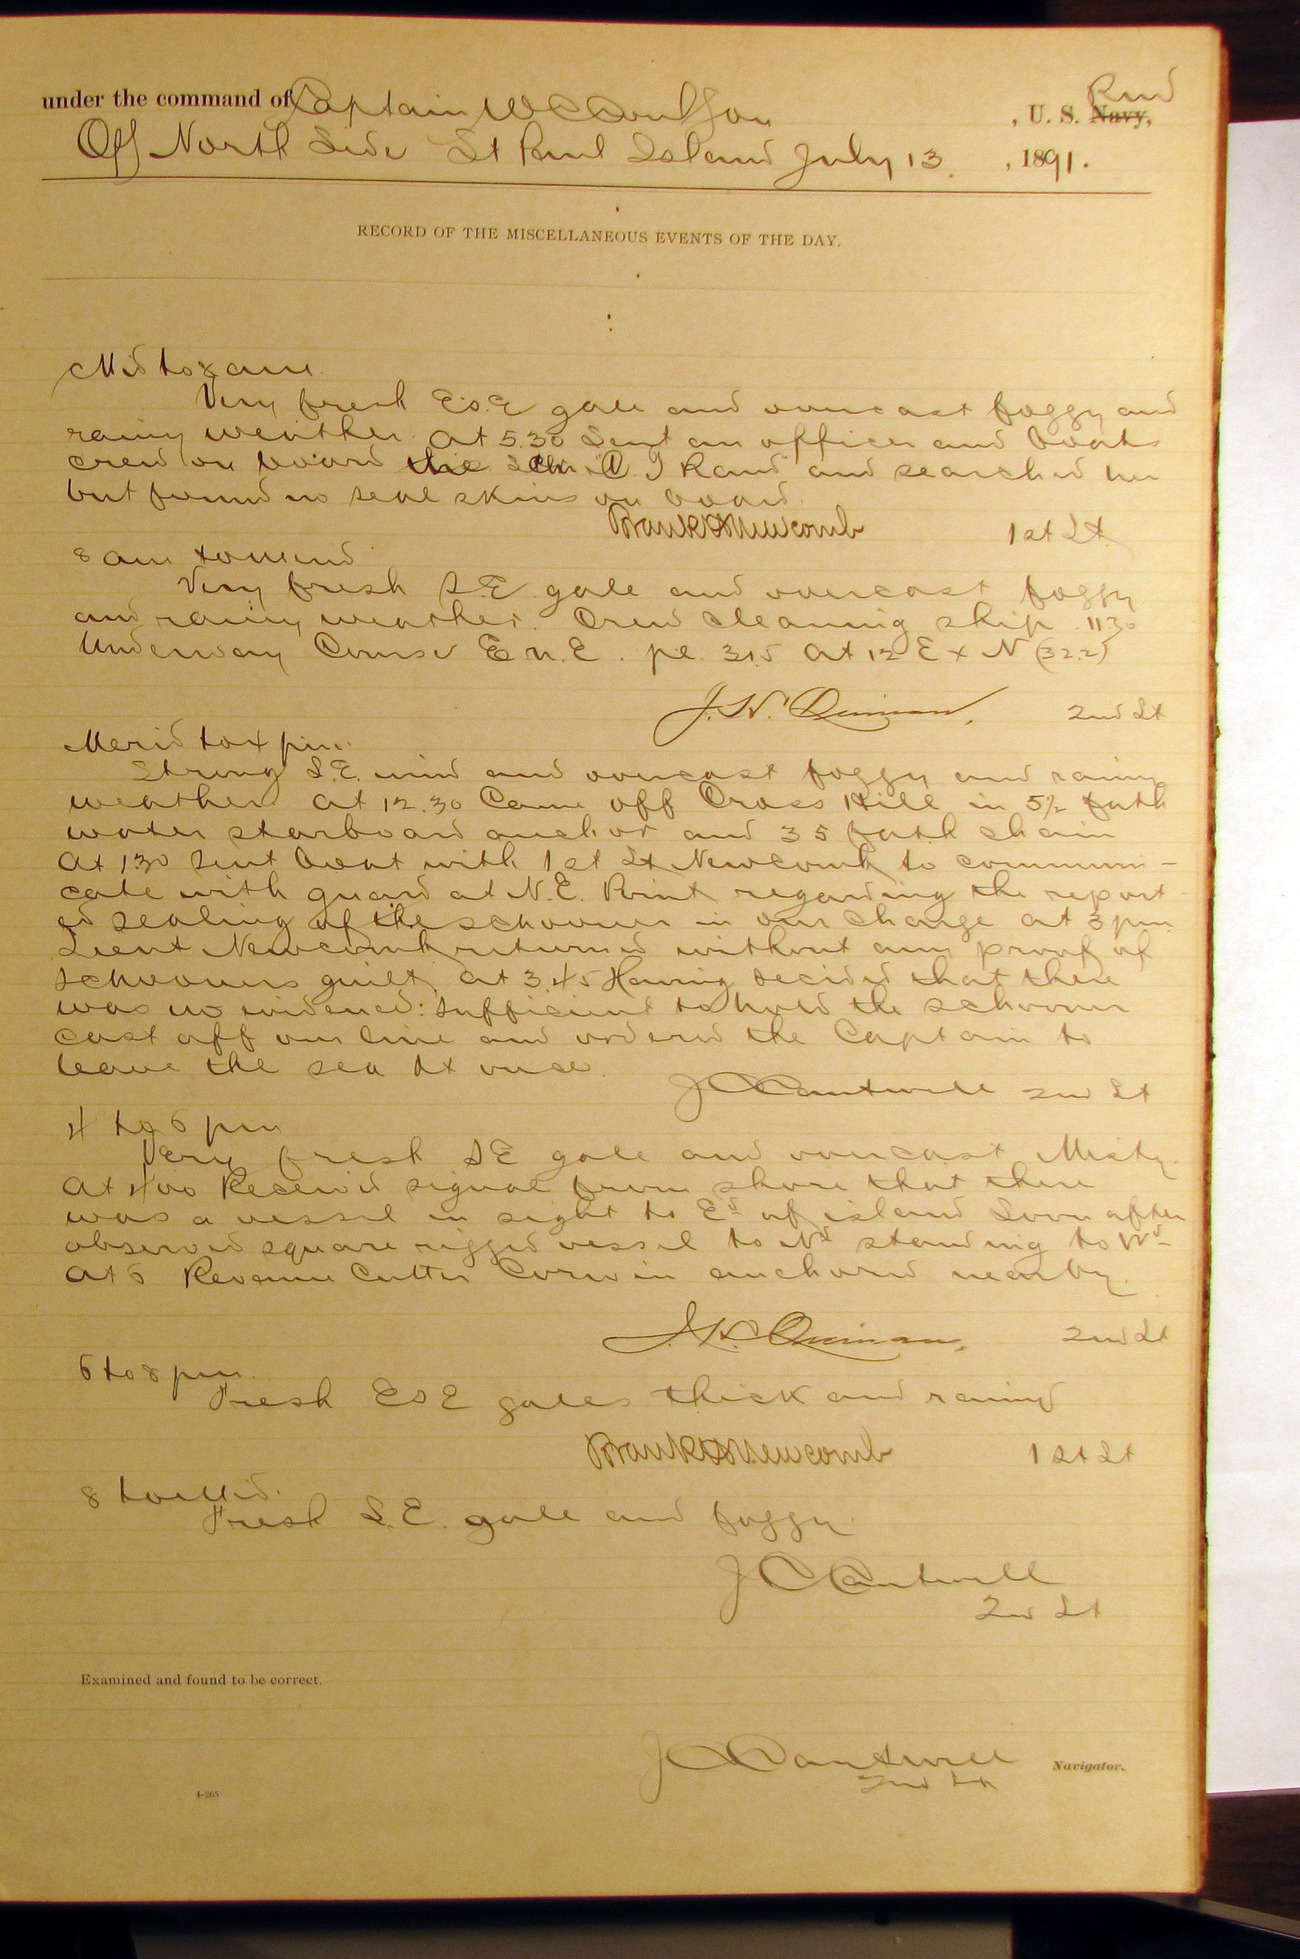 under the command of Captain W C Coulson, U. S. Navy, Rev
Off North Side St Paul Island July 13, 1891.
RECORD OF THE MISCELLANEOUS EVENTS OF THE DAY.
Mid to 8 am
Very fresh ESE gale and overcast foggy and
rainy weather. At 5.30 Sent an officer and boats
crew on board the Schr C. Rand and searched her
but found no seal skins on board.
Frank H Newcomb 1st Lt.
8 am to merid
Very fresh S.E gale and overcast foggy
and rainy weather. Crew cleaning ship. 11 30
Underway Course E n. E. p.l. 31.5 at 12 E x N (32.2)
J. H. Quinan, 2nd Lt
Merid to 4 pm.
Strong S.E. wind and overcast foggy and rainy
weather. At 12.30 Came off Cross Hill in 5½ fath
water starboard anchor and 35 fath chain
At 1 30 Sent boat with 1st Lt Newcomb to communi-
cate with guard at N.E. Point regarding the report-
ed sealing of the schooner in our charge at 3 pm
Lieut Newcomb returned without any proof of
schooners guilt. at 3.45 Having decided that there
was no evidence sufficient to hold the schooner
cast off our line and ordered the Captain to
leave the sea at once.
J C Cantwell 2nd Lt
4 to 6 pm
Very fresh SE gale and overcast Misty.
At 4 00 Received signal from shore that there
was a vessel in sight to Ed of island Soon after
observed square rigged vessel to Nd standing to Wd-
At 6 Revenue Cutter Corwin anchored nearby.
J. H. Quinan, 2nd Lt
6 to 8 pm.
Fresh ESE gales thick and rainy
Frank H Newcomb 1st Lt
8 to Mid.
Fresh S.E. gale and foggy
J C Cantwell
2nd Lt
Examined and found to be correct.
J C Cantwell Navigator.
2nd Lt
4-265